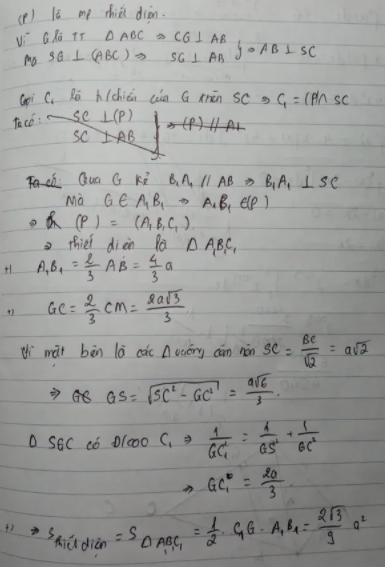 (P) là mp thiết diện.
Vì G là TT Δ ABC ⇒ CG ⊥ AB
Mà SG ⊥ (ABC) ⇒ SG ⊥ AB } ⇒ AB ⊥ SC
Gọi C₁ là h/chiếu của G trên SC ⇒ C₁ = (P)∩ SC
Ta có: SC ⊥ (P)
SC ⊥ AB } ⇒ (P) // AB
Ta có: Qua G kẻ B₁A₁ // AB ⇒ B₁A₁ ⊥ SC
Mà G ∈ A₁B₁ ⇒ A₁B₁ ∈ (P)
⇒ (P) = (A₁B₁C₁)
⇒ thiết diện là Δ A₁B₁C₁
+) A₁B₁ = 2/3 AB = 4/3 a
+) GC = 2/3 CM = 2a√3/3
Vì mặt bên là các Δ vuông cân nên SC = BC/√2 = a√2
⇒ GS = √(SC² - GC²) = a√6/3.
Δ SGC có đ/cao C₁ ⇒ 1/GC₁² = 1/GS² + 1/GC²
⇒ GC₁ = 2a/3.
+) ⇒ S thiết diện = S Δ A₁B₁C₁ = 1/2 . C₁G . A₁B₁ = 2√3/9 a²